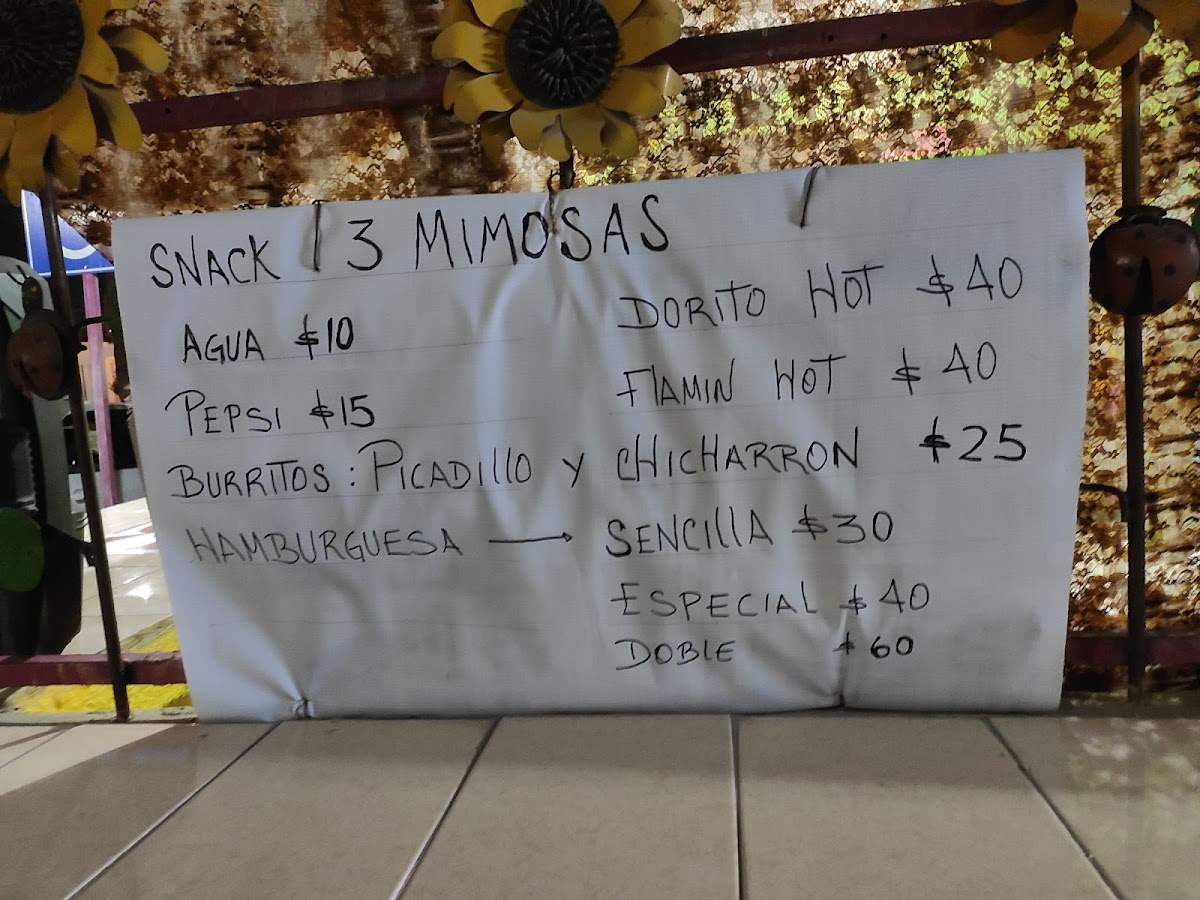 SNACK 3 MIMOSAS
AGUA $10
DORITO HOT $40
PEPSI $15
FlAMIN HOT $40
BURRITOS: PICADIllO Y CHICHARRON $25
HAMBURGUESA → SENCIllA $30
ESPECIAL $40
DOBLE $60